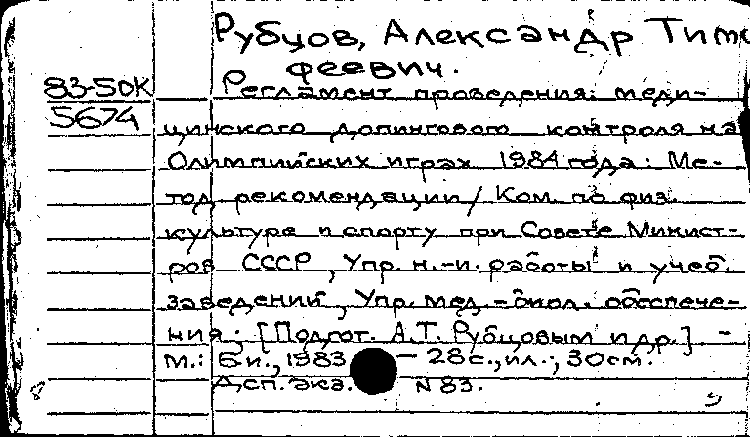 Рубцов, Александр Тимо
феевич.
83-50К
5674
Регламент проведения меди-
цинского допингового контроля на
Олимпийских играх 1984 года: Ме-
тод. рекомендации / Ком. по физ.
культуре и спорту при Совете Минист-
ров СССР, Упр. н.-и. работы и учеб.
заведений, Упр. мед.-биол. обеспече-
ния; [Подгот. А.Т. Рубцовым и др.]. -
М.: Б.и., 1983 - 28 с., ил.; 30 см.
Дсп. Экз. N 83.